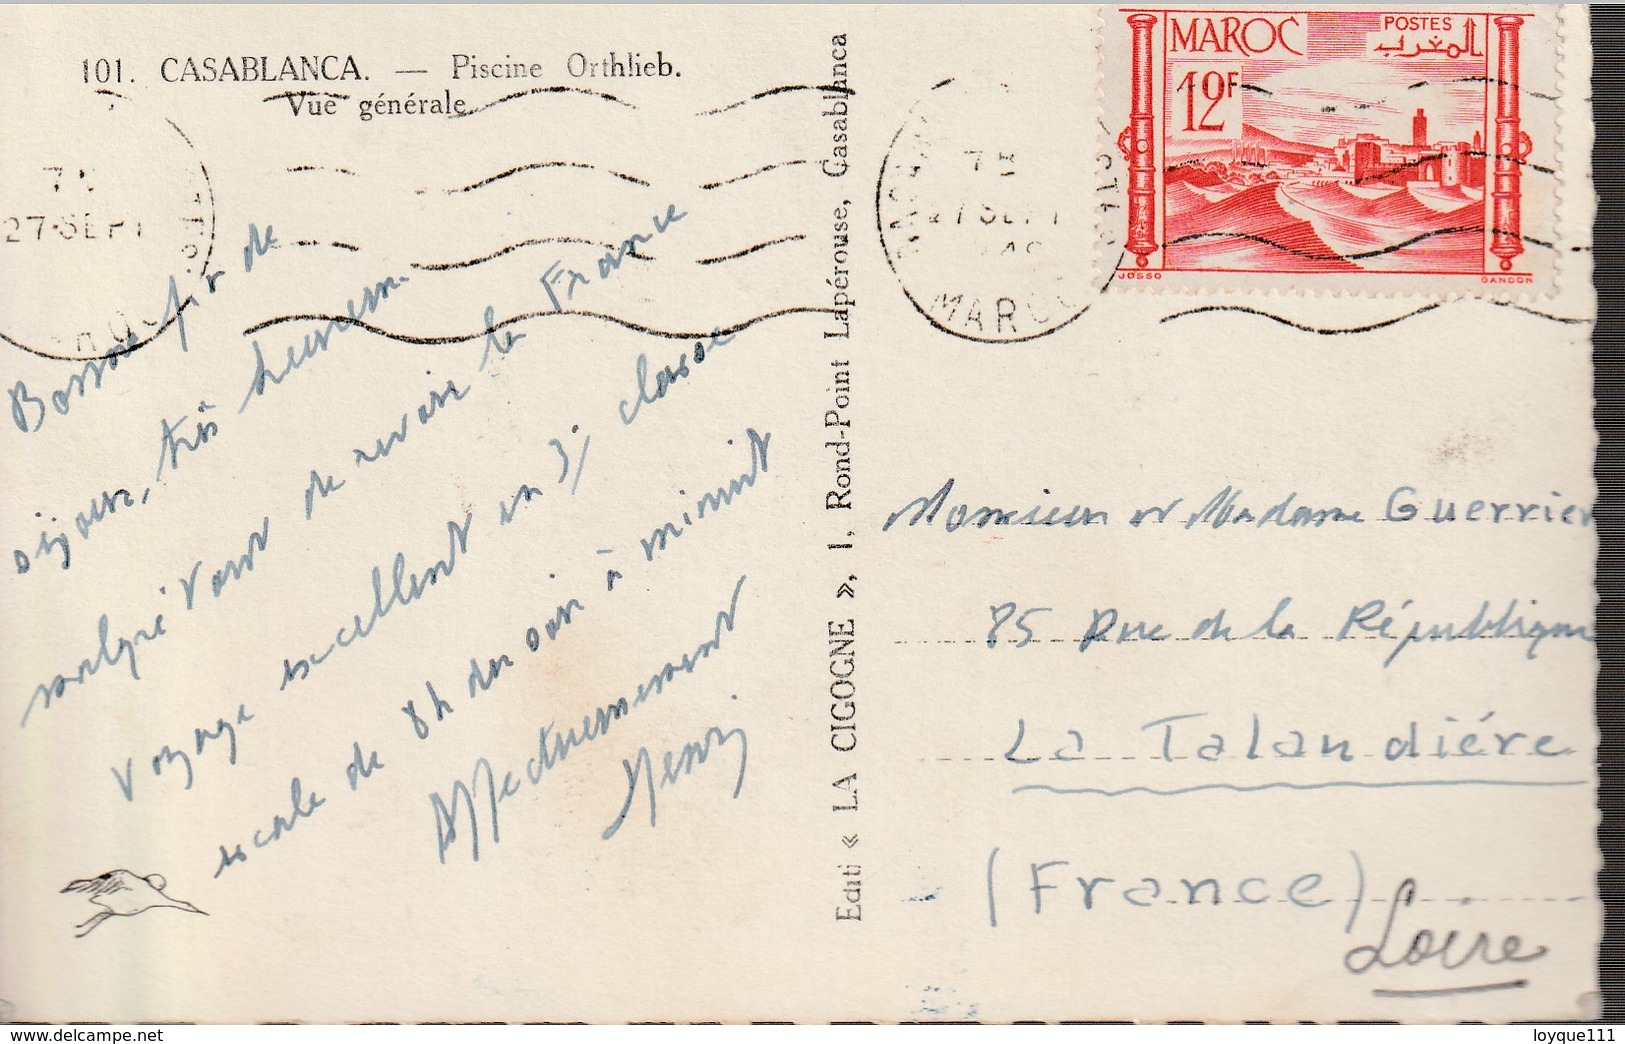 101. CASABLANCA. — Piscine Orthlieb.
Vue générale.
MAROC
POSTES
المغرب
12F
JOSSO
GANDON
27 SEPT
27 SEPT
MAROC
Bonne fin de
séjour, très heureux
malgré tout de revoir la France
Voyage excellent en 3e classe
escale de 8h du soir à minuit
Affectueusement
Henri
Editi « LA CIGOGNE », 1, Rond-Point Lapérouse, Casablanca
Monsieur et Madame Guerrier
85 Rue de la République
La Talandiére
(France)
Loire
delcampe.net
loyque111